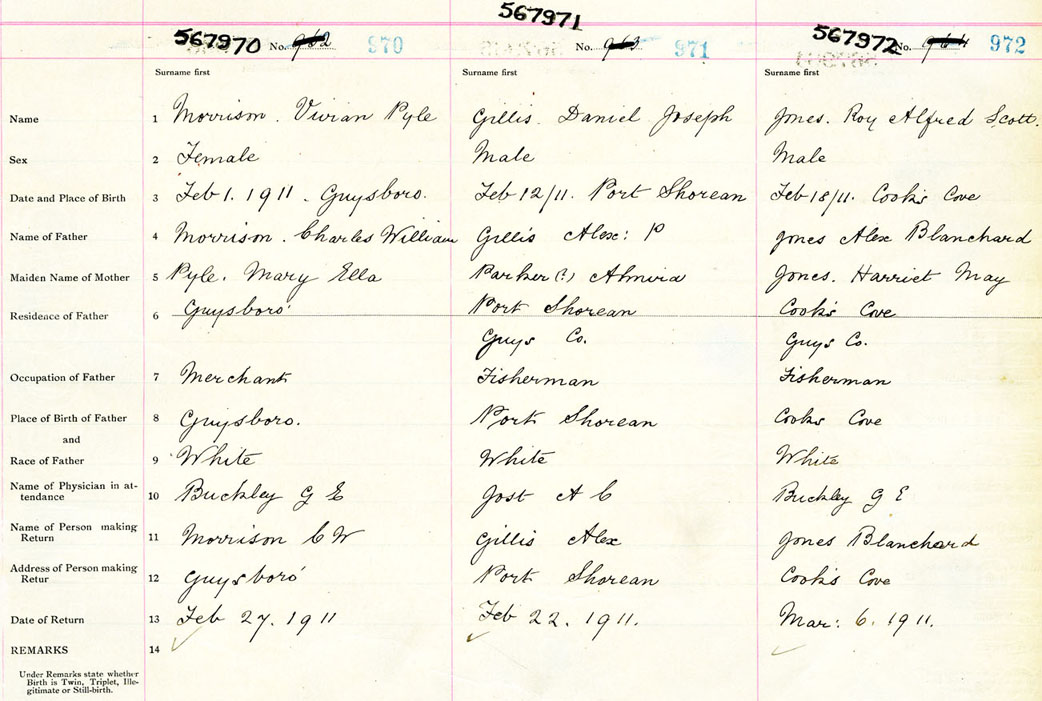 567970 No. 962 970
567971 No. 963 971
567972 No. 964 972
Surname first Surname first Surname first
Name 1 Morrison. Vivian Pyle Gillis. Daniel Joseph Jones. Roy Alfred Scott.
Sex 2 Female Male Male
Date and Place of Birth 3 Feb 1. 1911. Guysboro. Feb 12/11. Port Shorean Feb 18/11. Cook's Cove
Name of Father 4 Morrison. Charles William Gillis Alex: P Jones Alex Blanchard
Maiden Name of Mother 5 Pyle. Mary Ella Parker(?) Almira Jones. Harriet May
Residence of Father 6 Guysboro' Port Shorean Cook's Cove
Guys Co. Guys Co.
Occupation of Father 7 Merchant Fisherman Fisherman
Place of Birth of Father 8 Guysboro. Port Shorean Cook's Cove
and
Race of Father 9 White White White
Name of Physician in at-
tendance 10 Buckley G E Jost A C Buckley G E
Name of Person making
Return 11 Morrison C W Gillis Alex Jones Blanchard
Address of Person making
Retur 12 Guysboro' Port Shorean Cook's Cove
Date of Return 13 Feb 27. 1911 Feb 22. 1911. Mar: 6. 1911.
REMARKS 14
Under Remarks state whether
Birth is Twin, Triplet, Ille-
gitimate or Still-birth.